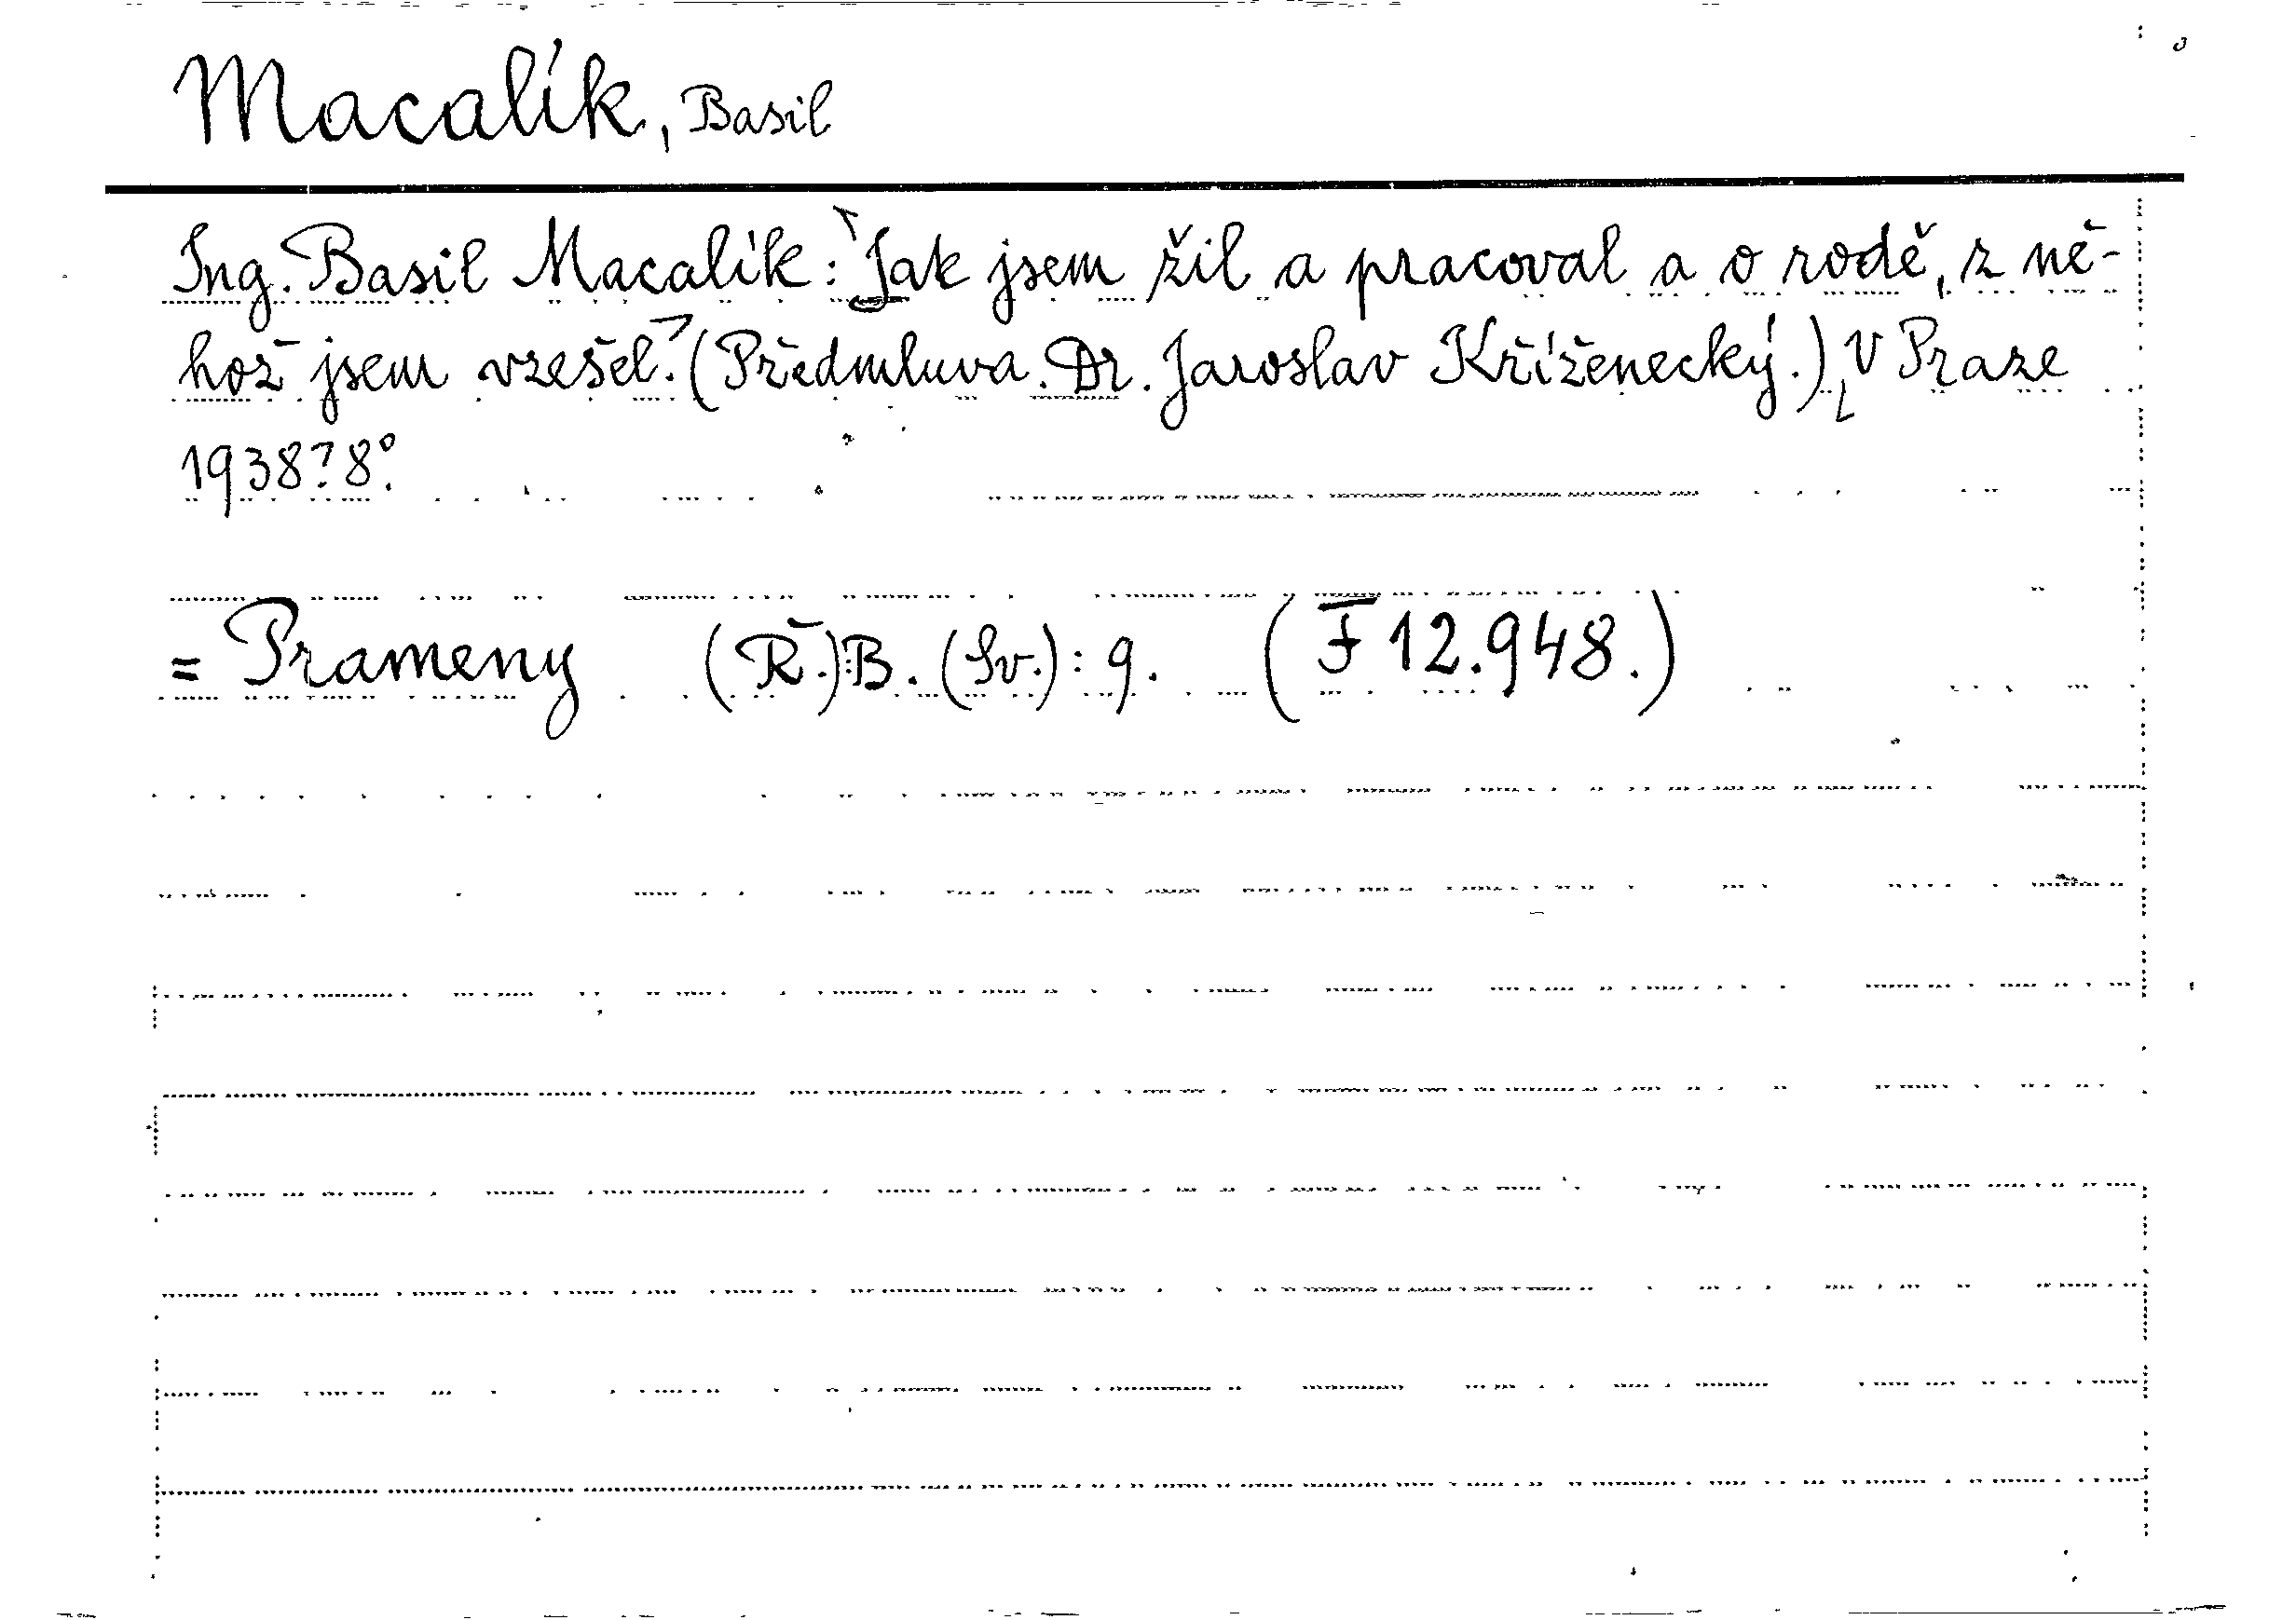 Macalík, Basil
Ing. Basil Macalík: Jak jsem žil a pracoval a o rodě, z ně-
hož jsem vzešel. (Předmluva. Dr. Jaroslav Kříženecký.) V Praze
1938? 8°.
= Prameny (Ř.):B. (Sv.): 9. (F 12.948.)